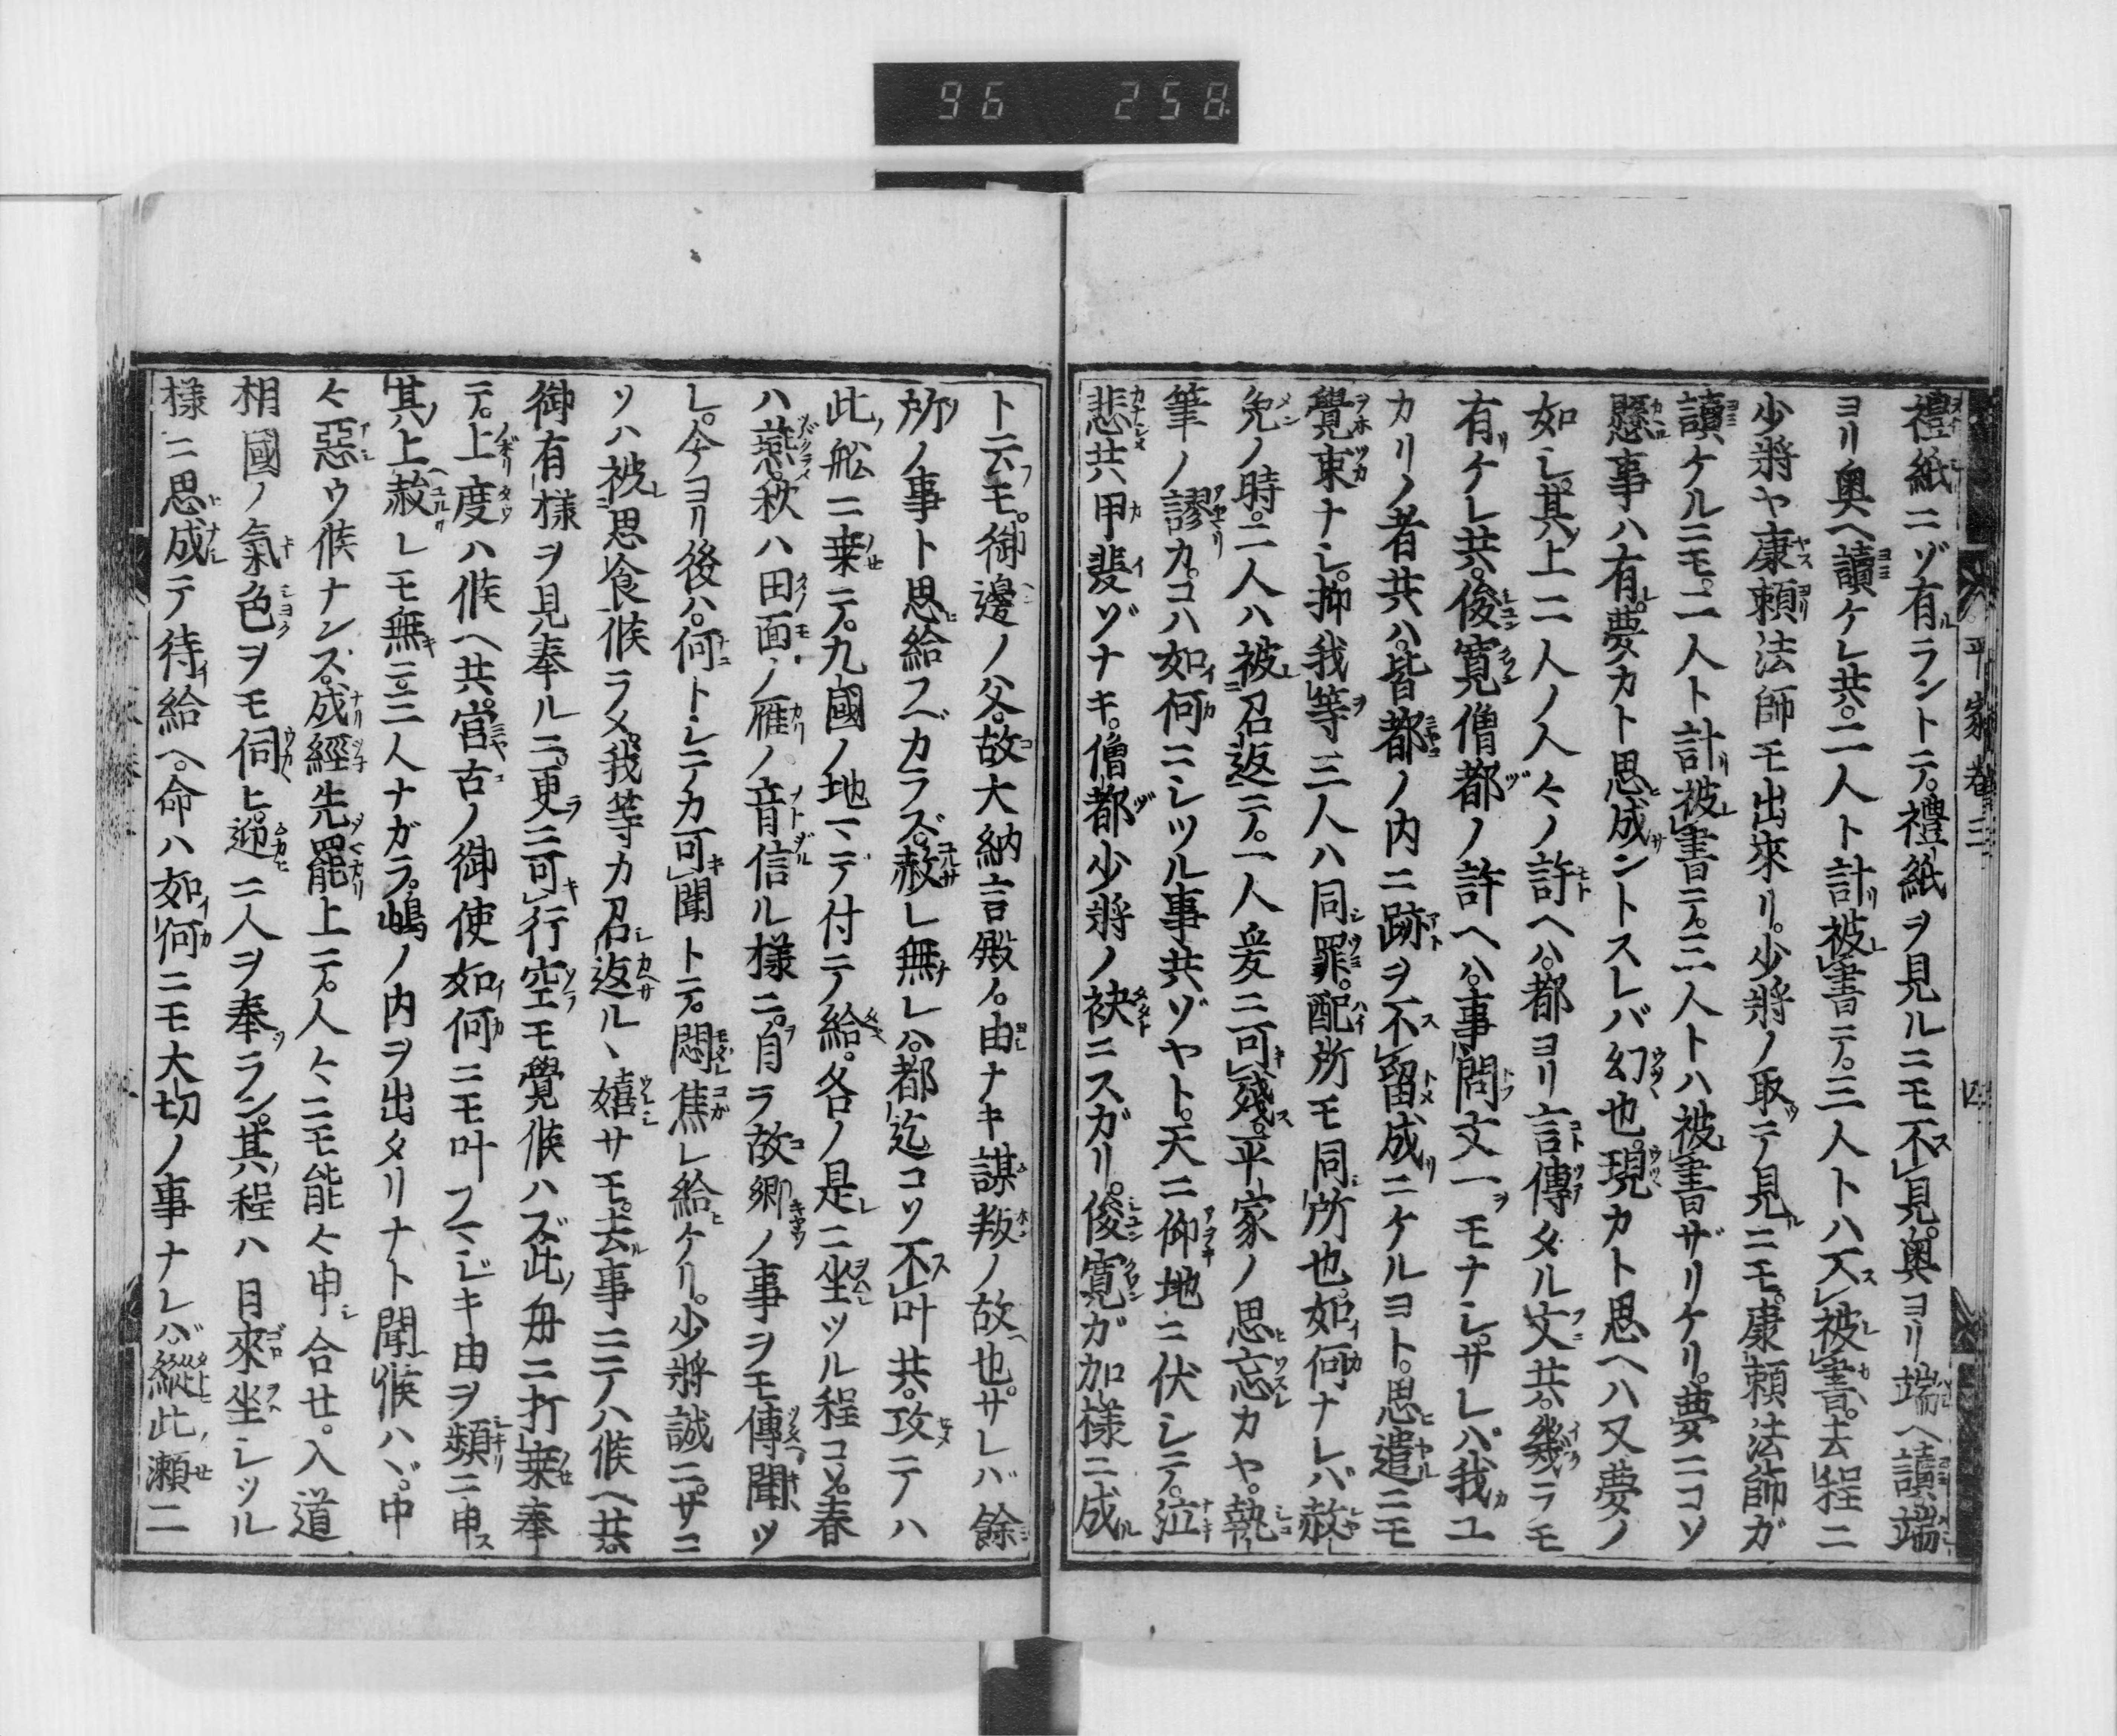 96 258
平家卷三
四
禮紙ニゾ有ラントテ。禮紙ヲ見ルニモ不見。奥ヨリ端ヘ讀端
ヨリ奥ヘ讀ケレ共。二人ト計被書テ。三人トハ不被書。去程ニ
少將ヤ康頼法師モ出來リ。少將ノ取テ見ニモ。康頼法師ガ
讀ケルニモ。二人ト計被書テ。三人トハ被書ザリケリ。夢ニコソ
懸事ハ有。夢カト思成ントスレバ幻也。現カト思ヘハ又夢ノ
如シ。其上二人ノ人々ノ許ヘハ。都ヨリ言傳タル文共。幾ラモ
有ケレ共。俊寛僧都ノ許ヘハ。事問文一モナシ。サレバ我ユ
カリノ者共ハ。皆都ノ内ニ跡ヲ不留成ニケルヨト。思遣ニモ
覺束ナシ。抑我等三人ハ同罪。配所モ同所也。如何ナレバ赦
免ノ時。二人ハ被召返テ。一人爰ニ可殘。平家ノ思忘カヤ。執
筆ノ謬カ。コハ如何ニシツル事共ゾヤト。天ニ仰地ニ伏シテ。泣
悲共甲斐ゾナキ。僧都少將ノ袂ニスガリ。俊寛ガ加樣ニ成
ト云モ。御邊ノ父。故大納言殿ノ。由ナキ謀叛ノ故也。サレバ餘
所ノ事ト思給フベカラズ。赦レ無レハ。都迄コソ不叶共。攻テハ
此舩ニ乗テ。九國ノ地マデ付テ給。各ノ是ニ坐ツル程コソ。春
ハ燕。秋ハ田面ノ雁ノ音信ル樣ニ。自ラ故郷ノ事ヲモ傳聞ツ
レ。今ヨリ後ハ。何トシテカ可聞トテ。悶焦レ給ケリ。少將誠ニ。サコ
ソハ被思食候ラメ。我等カ召返ルヽ嬉サモ。去事ニテハ候ヘ共。
御有樣ヲ見奉ルニ。更ニ可行空モ覺候ハズ。此舟ニ打乗奉
テ。上度ハ候ヘ共。官古ノ御使如何ニモ叶フマジキ由ヲ頻ニ申
其上赦レモ無ニ。三人ナガラ。嶋ノ内ヲ出タリナト聞候ハヾ。中
々惡ウ候ナンズ。成經先罷上テ。人々ニモ能々申合セ。入道
相國ノ氣色ヲモ伺ヒ。迎ニ人ヲ奉ラン。其程ハ日來坐シツル
樣ニ思成テ待給ヘ。命ハ如何ニモ大切ノ事ナレバ。縱此瀬ニ